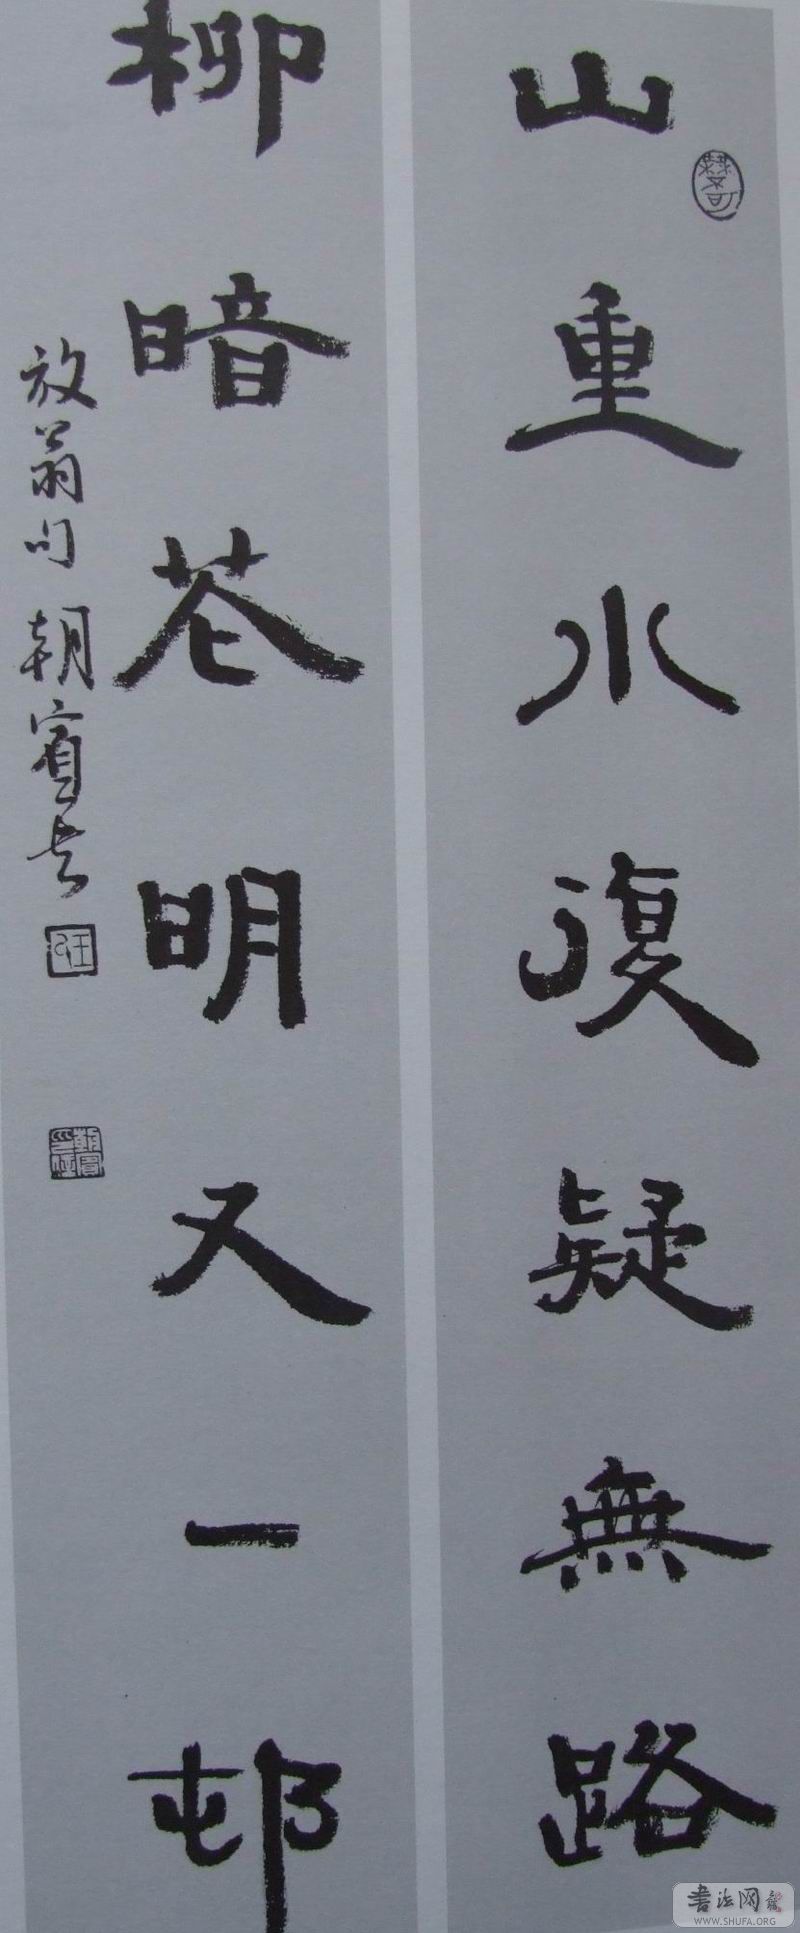 山重水復疑無路
柳暗花明又一邨
放翁句 朝賓书
汪
書法网
WWW.SHUFA.ORG